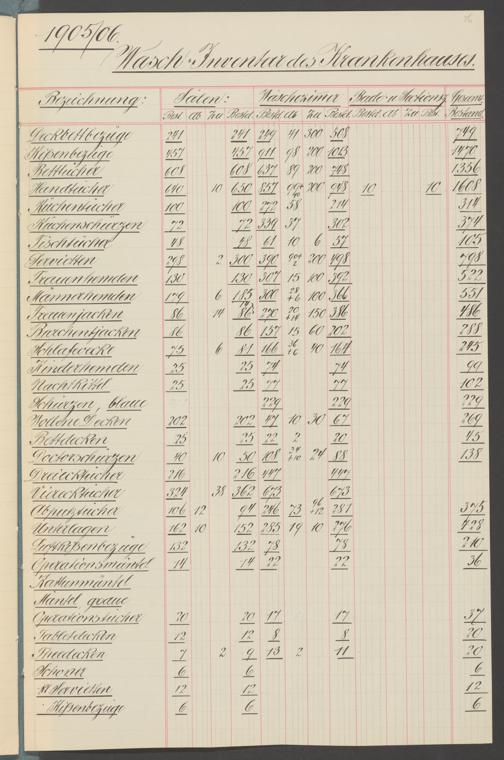 1905/06.
Wasch-Inventar des Krankenhauses.
Bezeichnung: Sälen: Waschezimmer Bade- u. Stations Gesamt
Best. ab zu Best. Best. ab zu Best. Best. ab zu Best. Bestand
Deckbettbezüge 241 241 249 41 300 508 749
Kißenbezüge 457 457 911 98 200 1013 1470
Betttücher 608 608 637 89 200 748 1356
Handtücher 640 10 650 857 200 948 10 10 1608
Küchentücher 100 100 272 58 214 314
Küchenschürzen 72 72 339 37 302 374
Tischtücher 48 48 61 10 6 57 105
Servietten 298 2 300 390 200 498 798
Frauenhemden 130 130 307 15 100 392 522
Männerhemden 179 6 185 300 100 366 551
Frauenjacken 86 14 86 270 150 386 486
Barchentjacken 86 86 157 15 60 202 288
Schlafröcke 75 6 81 166 40 164 245
Kinderhemden 25 25 74 74 99
Nachtkittel 25 25 77 77 102
Schürzen, blaue 229 229 229
Wollene Decken 202 202 47 10 30 67 269
Bettdecken 25 25 22 2 20 45
Doctorschürzen 40 10 50 108 24 88 138
Dreiecktücher 216 216 447 447
Vierecktücher 324 38 362 673 673
Abputztücher 106 12 94 246 73 281 375
Unterlagen 162 10 152 285 19 10 276 428
Gurtkißenbezüge 132 132 78 78 210
Operationsmäntel 14 14 22 22 36
Kattunmäntel
Mäntel, graue
Operationstücher 20 20 17 17 37
Tafeldecken 12 12 8 8 20
Theedecken 7 2 9 13 2 11 20
Schoner 6 6 6
" Servietten 12 12 12
" Kißenbezüge 6 6 6